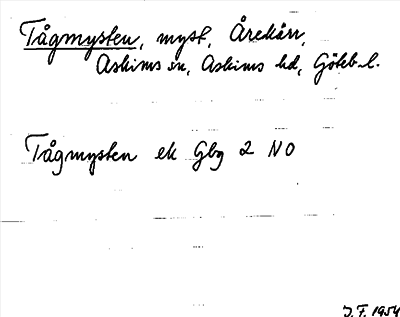 Tågmysten, myst, Årekärr,
Askims sn, Askims hd, Göteb. l.
Tågmysten ek Gbg 2 NO
J. F. 1954